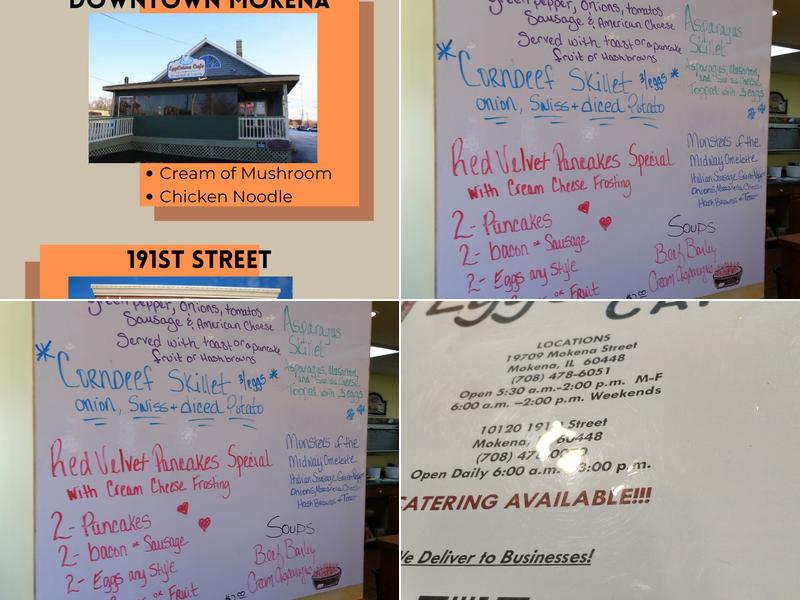 DOWNTOWN MOKENA
EggCetera Cafe
• Cream of Mushroom
• Chicken Noodle
191ST STREET
green pepper, onions, tomatos
Sausage & American Cheese
Served with toast or a pancake
fruit or Hashbrowns
Asparagus
Skillet
Asparagus,
and Swiss Cheese
Topped with 3 eggs
* Cornbeef Skillet 3/eggs *
onion, Swiss + diced Potato
Red Velvet Pancakes Special
with Cream Cheese Frosting
2- Pancakes
2- bacon or Sausage
2- Eggs any Style
or Fruit
Monsters of the
Midway Omelette
Italian Sausage, Green Pepper
Onions, Mozzarella Cheese
Hash Browns + Toast
Soups
Beef Barley
Cream Asparagus
green pepper, onions, tomatos
Sausage & American Cheese
Served with toast or a pancake
fruit or Hashbrowns
Asparagus
Skillet
Asparagus,
and Swiss Cheese
Topped with 3 eggs
* Cornbeef Skillet 3/eggs *
onion, Swiss + diced Potato
Red Velvet Pancakes Special
with Cream Cheese Frosting
2- Pancakes
2- bacon or Sausage
2- Eggs any Style
or Fruit
Monsters of the
Midway Omelette
Italian Sausage, Green Pepper
Onions, Mozzarella Cheese
Hash Browns + Toast
Soups
Beef Barley
Cream Asparagus
LOCATIONS
19709 Mokena Street
Mokena, IL 60448
(708) 478-6051
Open 5:30 a.m.-2:00 p.m. M-F
6:00 a.m. -2:00 p.m. Weekends
10120 191st Street
Mokena, 60448
(708)
Open Daily 6:00 a.m. 3:00 p.m.
CATERING AVAILABLE!!!
We Deliver to Businesses!